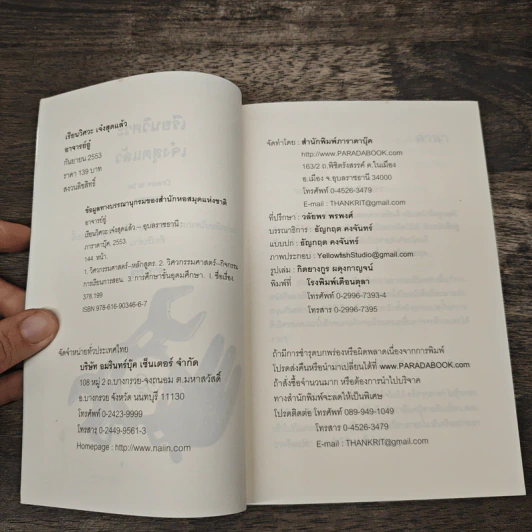 เรียนวิศวะ เจ๋งสุดแล้ว
อาจารย์อู๋
กันยายน 2553
ราคา 139 บาท
สงวนลิขสิทธิ์
ข้อมูลทางบรรณานุกรมของสำนักหอสมุดแห่งชาติ
อาจารย์อู๋
เรียนวิศวะ เจ๋งสุดแล้ว.-- อุบลราชธานี :
ภาราดาบุ๊ค, 2553.
144. หน้า
1. วิศวกรรมศาสตร์--หลักสูตร. 2. วิศวกรรมศาสตร์--กิจกรรม
การเรียนการสอน. 3. การศึกษาขั้นอุดมศึกษา. I. ชื่อเรื่อง.
378.199
ISBN 978-616-90346-6-7
จัดจำหน่ายทั่วประเทศไทย
บริษัท อมรินทร์บุ๊ค เซ็นเตอร์ จำกัด
108 หมู่ 2 ถ.บางกรวย-จงถนอม ต.มหาสวัสดิ์
อ.บางกรวย จังหวัด นนทบุรี 11130
โทรศัพท์ 0-2423-9999
โทรสาร 0-2449-9561-3
Homepage : http://www.naiin.com
จัดทำโดย : สำนักพิมพ์ภาราดาบุ๊ค
http://www.PARADABOOK.com
163/2 ถ.พิชิตรังสรรค์ ต.ในเมือง
อ.เมือง จ.อุบลราชธานี 34000
โทรศัพท์ 0-4526-3479
E-mail : THANKRIT@gmail.com
ที่ปรึกษา : วลัยพร พรพงศ์
บรรณาธิการ : ธัญกฤต คงจันทร์
แบบปก : ธัญกฤต คงจันทร์
ภาพประกอบ : YellowfishStudio@gmail.com
รูปเล่ม : กิตยางกูร ผดุงกาญจน์
พิมพ์ที่ โรงพิมพ์เดือนตุลา
โทรศัพท์ 0-2996-7393-4
โทรสาร 0-2996-7395
ถ้ามีการชำรุดบกพร่องหรือผิดพลาดเนื่องจากการพิมพ์
โปรดส่งคืนหรือนำมาเปลี่ยนได้ที่ www.PARADABOOK.com
ถ้าสั่งซื้อจำนวนมาก หรือต้องการนำไปบริจาค
ทางสำนักพิมพ์จะลดให้เป็นพิเศษ
โปรดติดต่อ โทรศัพท์ 089-949-1049
โทรสาร 0-4526-3479
E-mail : THANKRIT@gmail.com